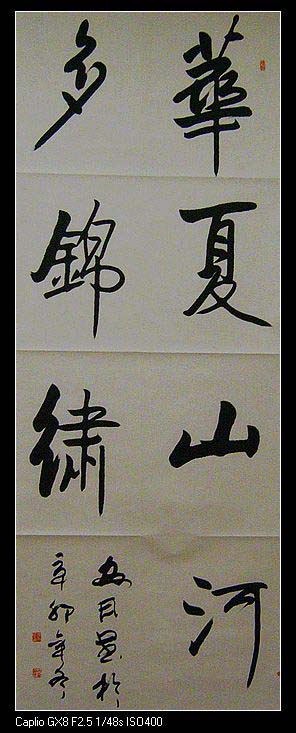 華夏山河
多錦繡
於
辛卯年冬
Caplio GX8 F2.5 1/48s ISO400